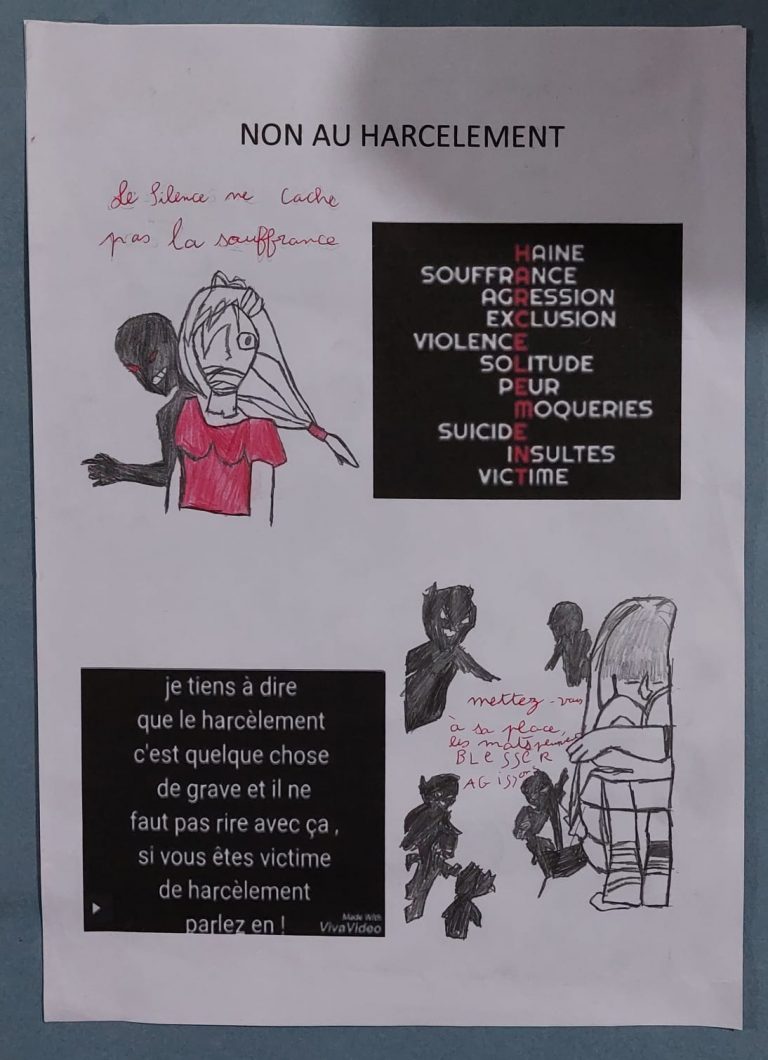 NON AU HARCELEMENT
Le silence ne cache
pas la souffrance
HAINE
SOUFFRANCE
AGRESSION
EXCLUSION
VIOLENCE
SOLITUDE
PEUR
MOQUERIES
SUICIDE
INSULTES
VICTIME
je tiens à dire
que le harcèlement
c'est quelque chose
de grave et il ne
faut pas rire avec ça ,
si vous êtes victime
de harcèlement
parlez en !
Made With
VivaVideo
mettez-vous
à sa place,
les mots peuvent
BLESSER
AGissons